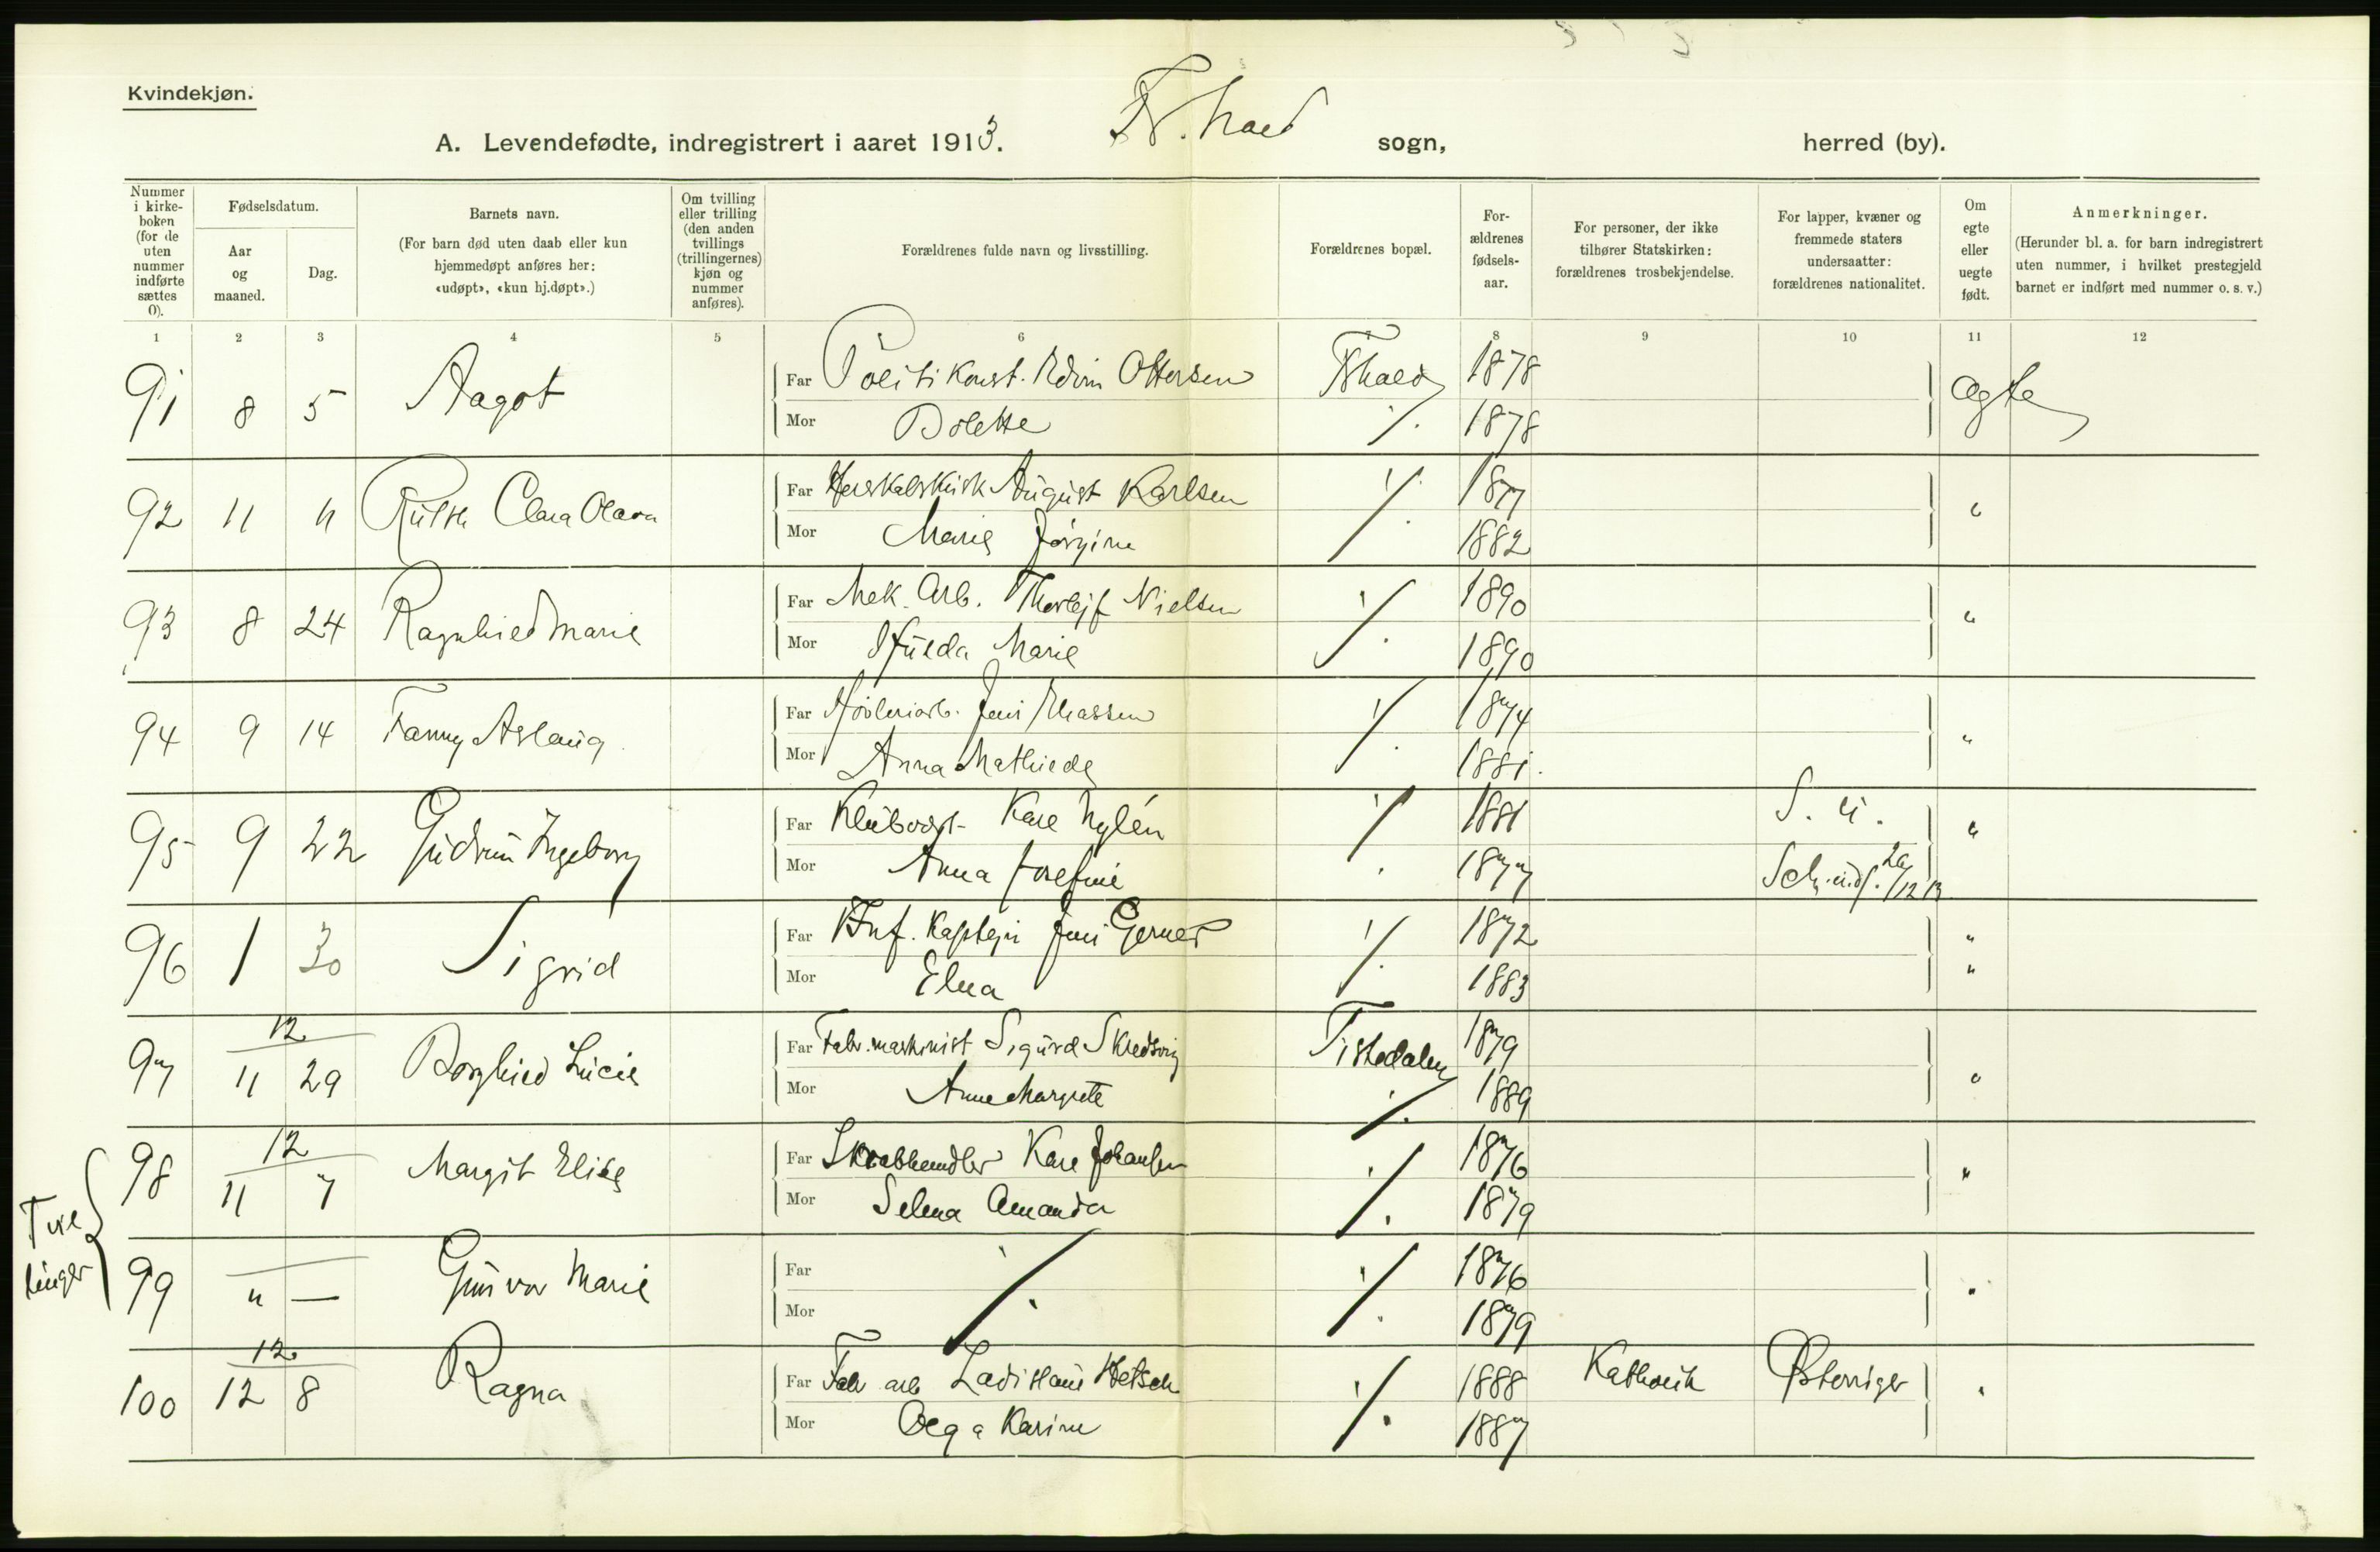 Kvindekjøn.
A. Levendefødte, indregistrert i aaret 1913. Fr.hald sogn, herred (by).
Nummer i kirke-boken (for de uten nummer indførte sættes 0).
Fødselsdatum.
Aar og maaned.
Dag.
Barnets navn.
(For barn død uten daab eller kun hjemmedøpt anføres her: «udøpt», «kun hj.døpt».)
Om tvilling eller trilling (den anden tvillings (trillingernes) kjøn og nummer anføres).
Forældrenes fulde navn og livsstilling.
Forældrenes bopæl.
For-ældrenes fødsels-aar.
For personer, der ikke tilhører Statskirken: forældrenes trosbekjendelse.
For lapper, kvæner og fremmede staters undersaatter: forældrenes nationalitet.
Om egte eller uegte født.
Anmerkninger.
(Herunder bl. a. for barn indregistrert uten nummer, i hvilket prestegjeld barnet er indført med nummer o. s. v.)
1 2 3 4 5 6 7 8 9 10 11 12
91 8 5 Aagot Far Politikonst. Edvin Ottersen Frhald 1878 ægte
Mor Bolette ./. 1878
92 11 11 Ruth Clara Olava Far August Karlsen ./. 1877 "
Mor Marie Jørgine 1882
93 8 24 Ragnhild Marie Far Mek. Arb. Thorleif Nielsen ./. 1890 "
Mor Marie 1890
94 9 14 Fanny Aslaug Far Høvleriarb. Jens ./. 1874 "
Mor Anna Mathilde 1881.
95 9 22 Gudrun Ingeborg Far Karl Nylén ./. 1881 S. u. "
Mor Anna Josefine 1877
96 1 30 Sigrid Far Kaptejn Jens Gerner ./. 1872 "
Mor Elna 1883 "
97 12 11 29 Borghild Lucie Far Fabr. maskinist Sigurd Skredsvig Tistedalen 1879 "
Mor Anne Margrete ./. 1889
98 12 11 7 Margit Elise Far Skrabhandler Karl Johansen ./. 1876 "
Mor Selma Amanda 1879
Tvillinger
99 " — Gunvor Marie Far ./. ./. 1876 "
Mor 1879
100 12 12 8 Ragna Far Fabr arb Ladislaus ./. 1888 Katholik Østerriger "
Mor Olga Karine 1887